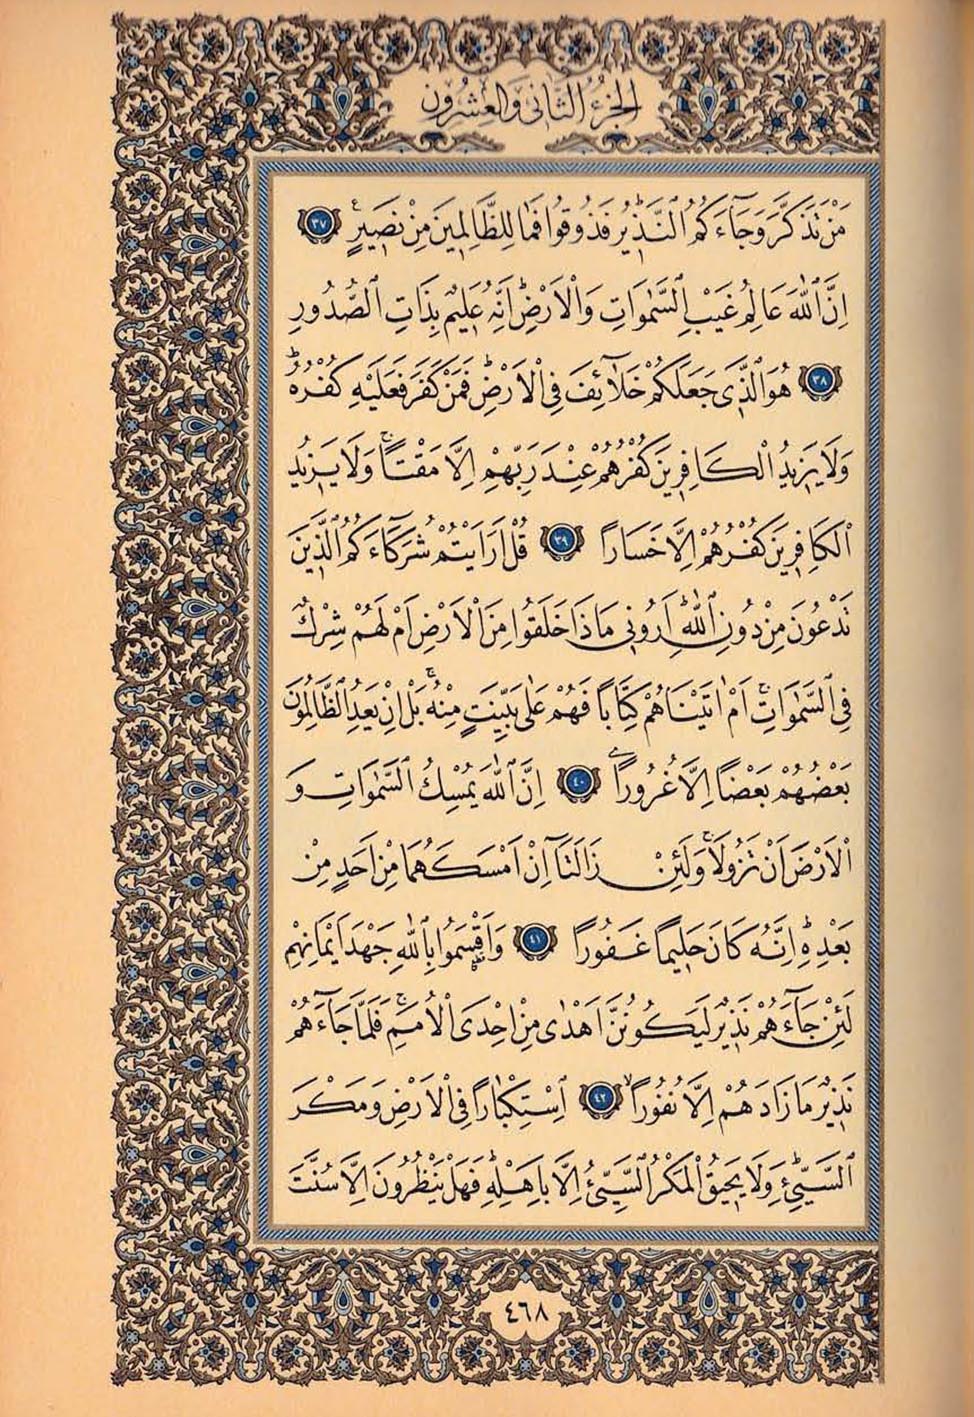 الجزء الثاني والعشرون
مَنْ تَذَكَّرَ وَجَٓاءَكُمُ النَّذ۪يرُۜ فَذُوقُوا فَمَا لِلظَّالِم۪ينَ مِنْ نَص۪يرٍ۟ ﴿٣٧﴾
اِنَّ اللّٰهَ عَالِمُ غَيْبِ السَّمٰوَاتِ وَالْاَرْضِۜ اِنَّهُ عَل۪يمٌ بِذَاتِ الصُّدُورِ
﴿٣٨﴾ هُوَ الَّذ۪ي جَعَلَكُمْ خَلَٓائِفَ فِي الْاَرْضِۜ فَمَنْ كَفَرَ فَعَلَيْهِ كُفْرُهُۜ
وَلَا يَز۪يدُ الْكَافِر۪ينَ كُفْرُهُمْ عِنْدَ رَبِّهِمْ اِلَّا مَقْتًاۚ وَلَا يَز۪يدُ
الْكَافِر۪ينَ كُفْرُهُمْ اِلَّا خَسَارًا ﴿٣٩﴾ قُلْ اَرَاَيْتُمْ شُرَكَٓاءَكُمُ الَّذ۪ينَ
تَدْعُونَ مِنْ دُونِ اللّٰهِۜ اَرُون۪ي مَاذَا خَلَقُوا مِنَ الْاَرْضِ اَمْ لَهُمْ شِرْكٌ
فِي السَّمٰوَاتِۚ اَمْ اٰتَيْنَاهُمْ كِتَابًا فَهُمْ عَلٰى بَيِّنَتٍ مِنْهُۚ بَلْ اِنْ يَعِدُ الظَّالِمُونَ
بَعْضُهُمْ بَعْضًا اِلَّا غُرُورًا ﴿٤٠﴾ اِنَّ اللّٰهَ يُمْسِكُ السَّمٰوَاتِ وَ
الْاَرْضَ اَنْ تَزُولَاۚ وَلَئِنْ زَالَتَٓا اِنْ اَمْسَكَهُمَا مِنْ اَحَدٍ مِنْ
بَعْدِه۪ۜ اِنَّهُ كَانَ حَل۪يمًا غَفُورًا ﴿٤١﴾ وَاَقْسَمُوا بِاللّٰهِ جَهْدَ اَيْمَانِهِمْ
لَئِنْ جَٓاءَهُمْ نَذ۪يرٌ لَيَكُونُنَّ اَهْدٰى مِنْ اِحْدَى الْاُمَمِۚ فَلَمَّا جَٓاءَهُمْ
نَذ۪يرٌ مَا زَادَهُمْ اِلَّا نُفُورًاۙ ﴿٤٢﴾ اِسْتِكْبَارًا فِي الْاَرْضِ وَمَكْرَ
السَّيِّئِۜ وَلَا يَح۪يقُ الْمَكْرُ السَّيِّئُ اِلَّا بِاَهْلِه۪ۜ فَهَلْ يَنْظُرُونَ اِلَّا سُنَّتَ
٤٦٨